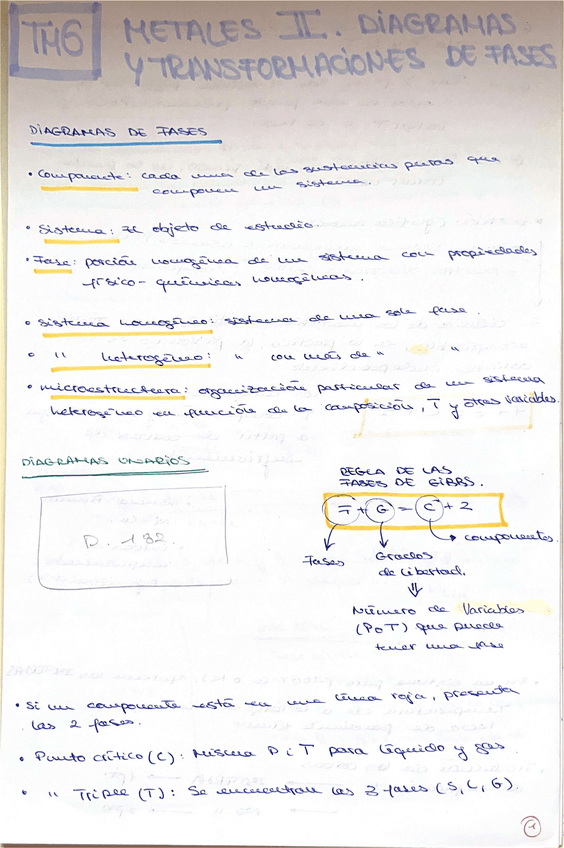 TM6 METALES II. DIAGRAMAS
Y TRANSFORMACIONES DE FASES
DIAGRAMAS DE FASES
• Componente: cada una de las sustancias puras que
componen un sistema.
• Sistema: El objeto de estudio.
• Fase: porción homogénea de un sistema con propiedades
físico-químicas homogéneas.
• Sistema homogéneo: sistema de una sola fase.
• " heterogéneo: " con más de " "
• microestructura: organización particular de un sistema
heterogéneo en función de la composición, T y otras variables.
DIAGRAMAS UNARIOS
D. 182.
REGLA DE LAS
FASES DE GIBBS.
F + G = C + 2
Fases
Grados
de libertad.
componentes.
⇓
Número de Variables
(P o T) que puede
tener una fase
• Si un componente está en una línea roja, presenta
las 2 fases.
• Punto crítico (C): Misma P i T para líquido y gas.
• " Triple (T): Se encuentran las 3 fases (S, L, G).
1